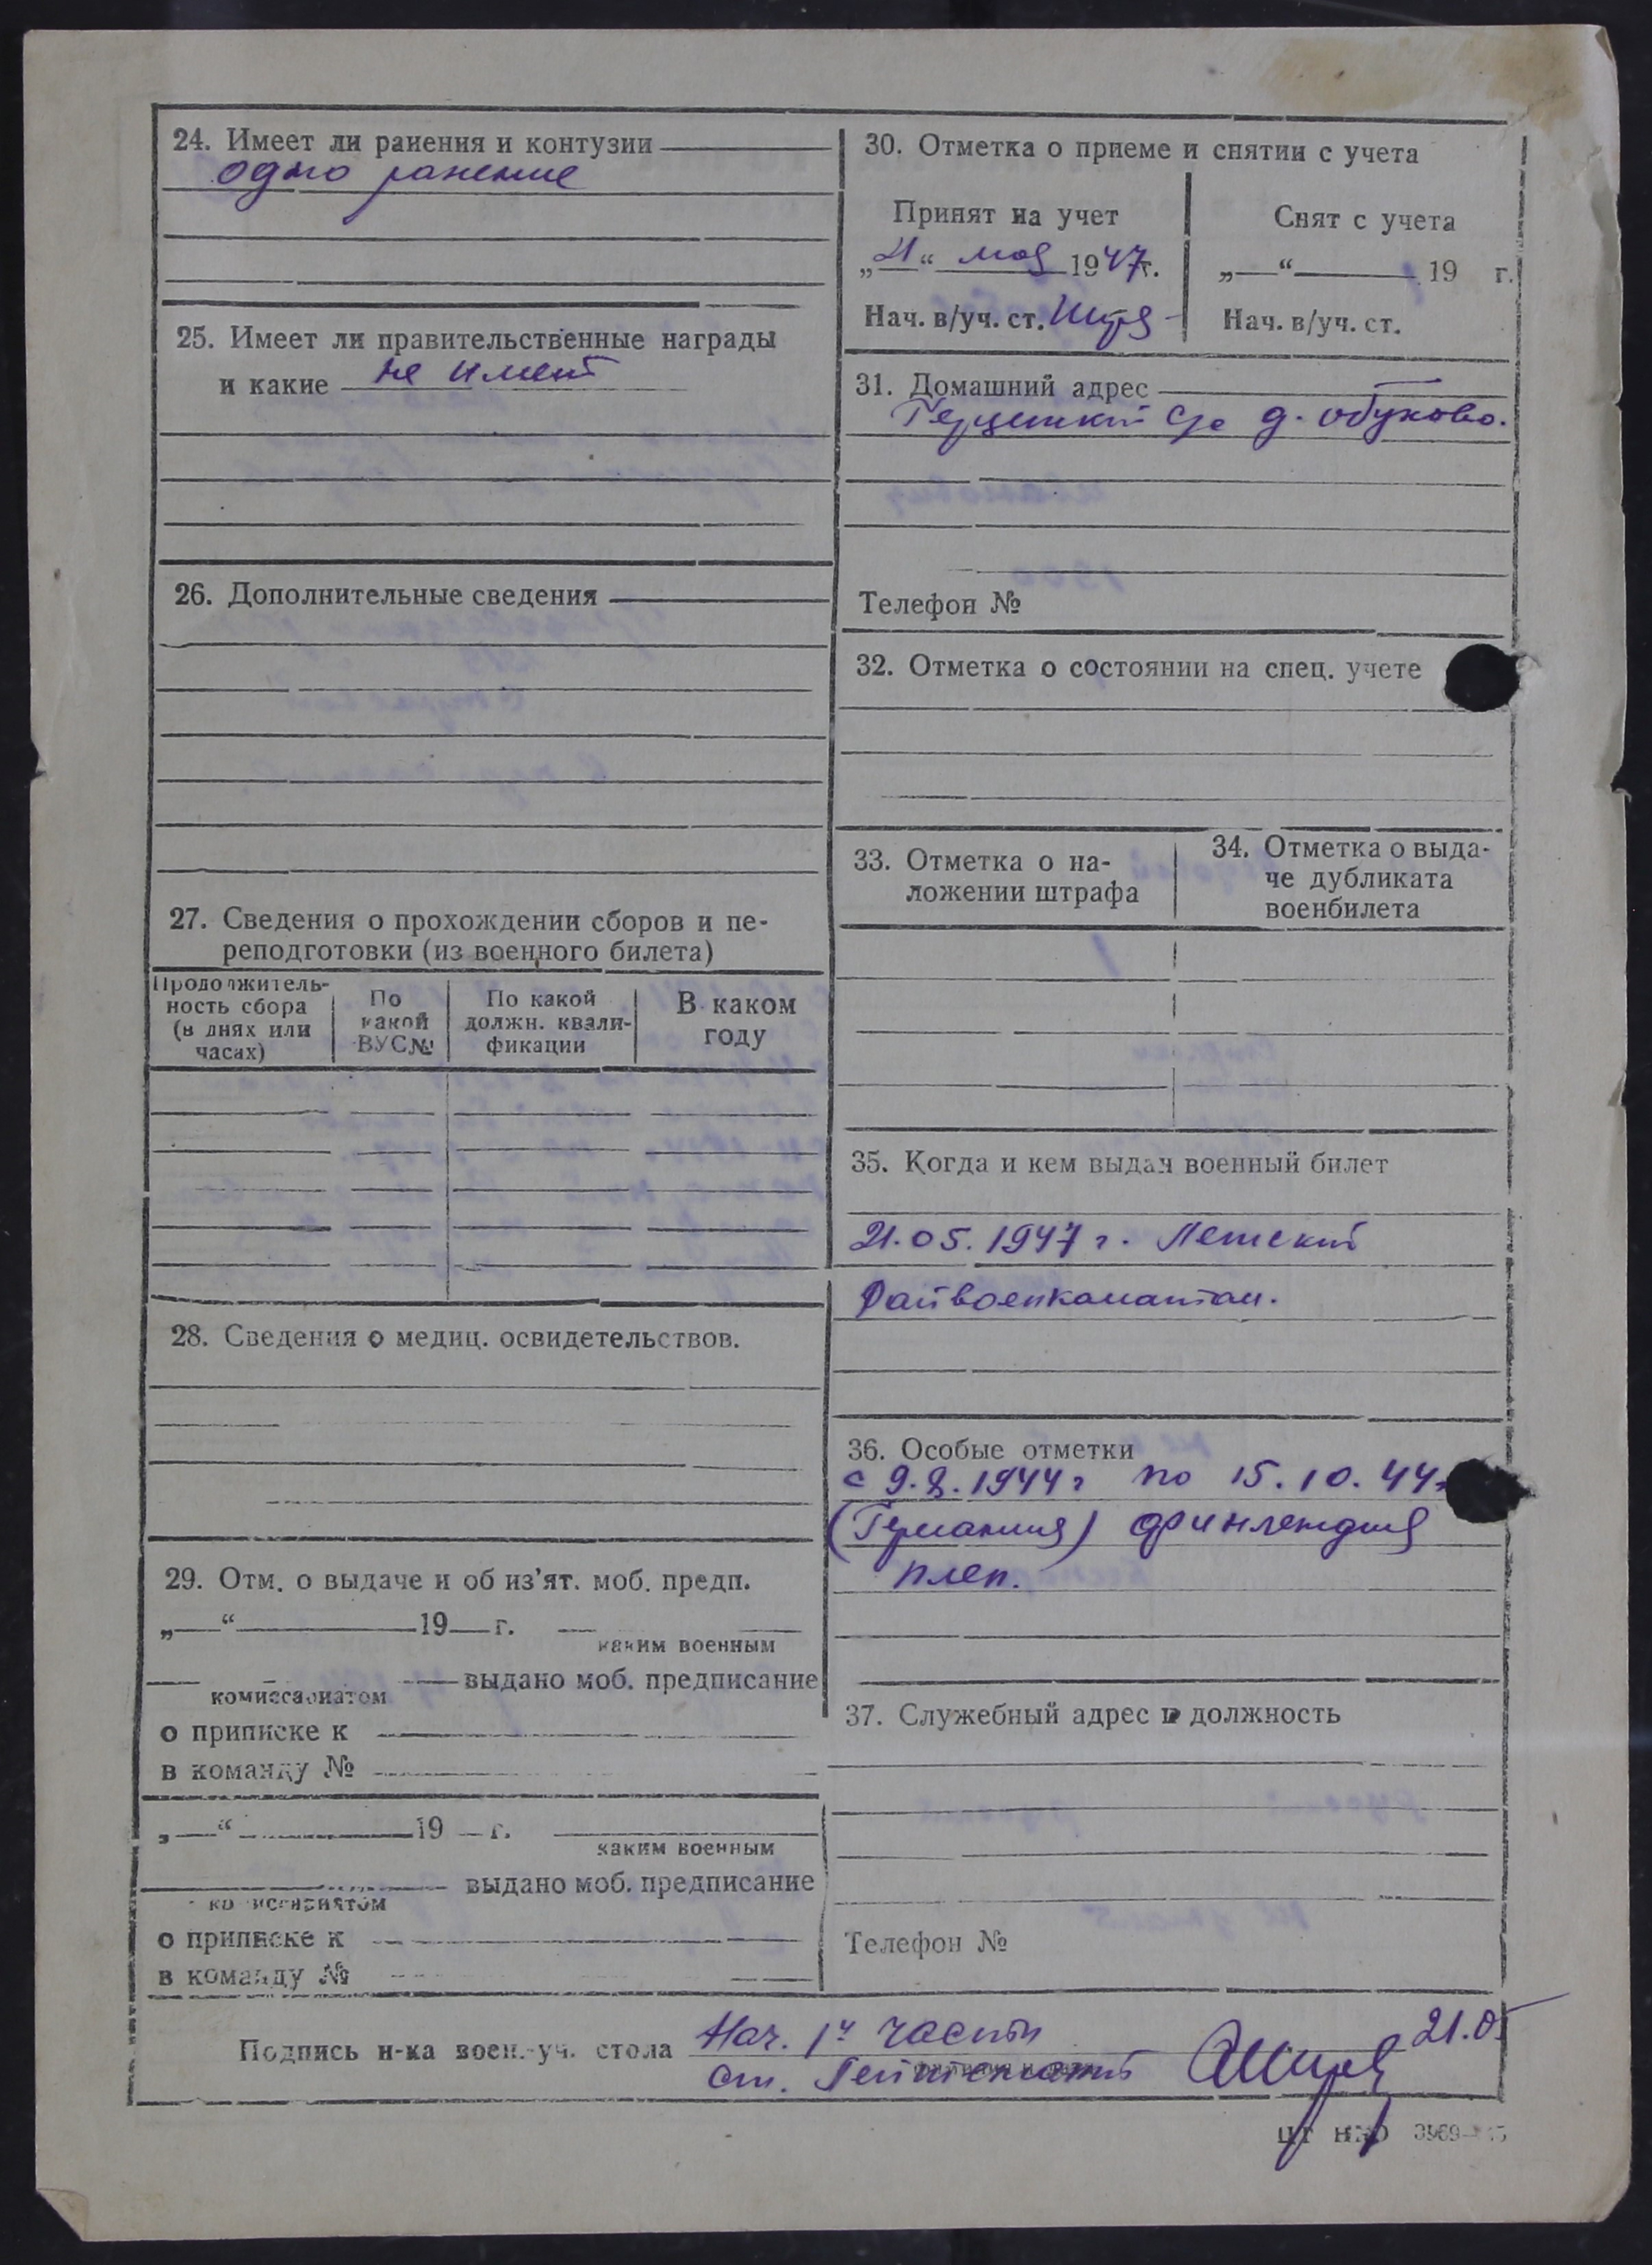 24. Имеет ли ранения и контузии
одно ранение
25. Имеет ли правительственные награды
и какие не имеет
26. Дополнительные сведения
27. Сведения о прохождении сборов и пе-
реподготовки (из военного билета)
Продолжитель-
ность сбора
(в днях или
часах)
По
какой
ВУС№
По какой
должн. квали-
фикации
В каком
году
28. Сведения о медиц. освидетельствов.
29. Отм. о выдаче и об из'ят. моб. предп.
„ “ 19 г.
каким военным
выдано моб. предписание
комиссариатом
о приписке к
в команду №
„ “ 19 г.
каким военным
выдано моб. предписание
комиссариатом
о приписке к
в команду №
30. Отметка о приеме и снятии с учета
Принят на учет
„21“ мая 1947г.
Нач. в/уч. ст.
Снят с учета
„ “ 19 г.
Нач. в/уч. ст.
31. Домашний адрес
с/с д. Обухово.
Телефон №
32. Отметка о состоянии на спец. учете
33. Отметка о на-
ложении штрафа
34. Отметка о выда-
че дубликата
военбилета
35. Когда и кем выдан военный билет
21.05.1947 г. Летский
Райвоенкоматом.
36. Особые отметки
с 9.8.1944 г по 15.10.44г
(Германия) Финлендия
плен.
37. Служебный адрес и должность
Телефон №
Подпись н-ка воен.-уч. стола Нач. 1ч части
ст. Лейтенант 21.05
ЦТ НКО 3969—45